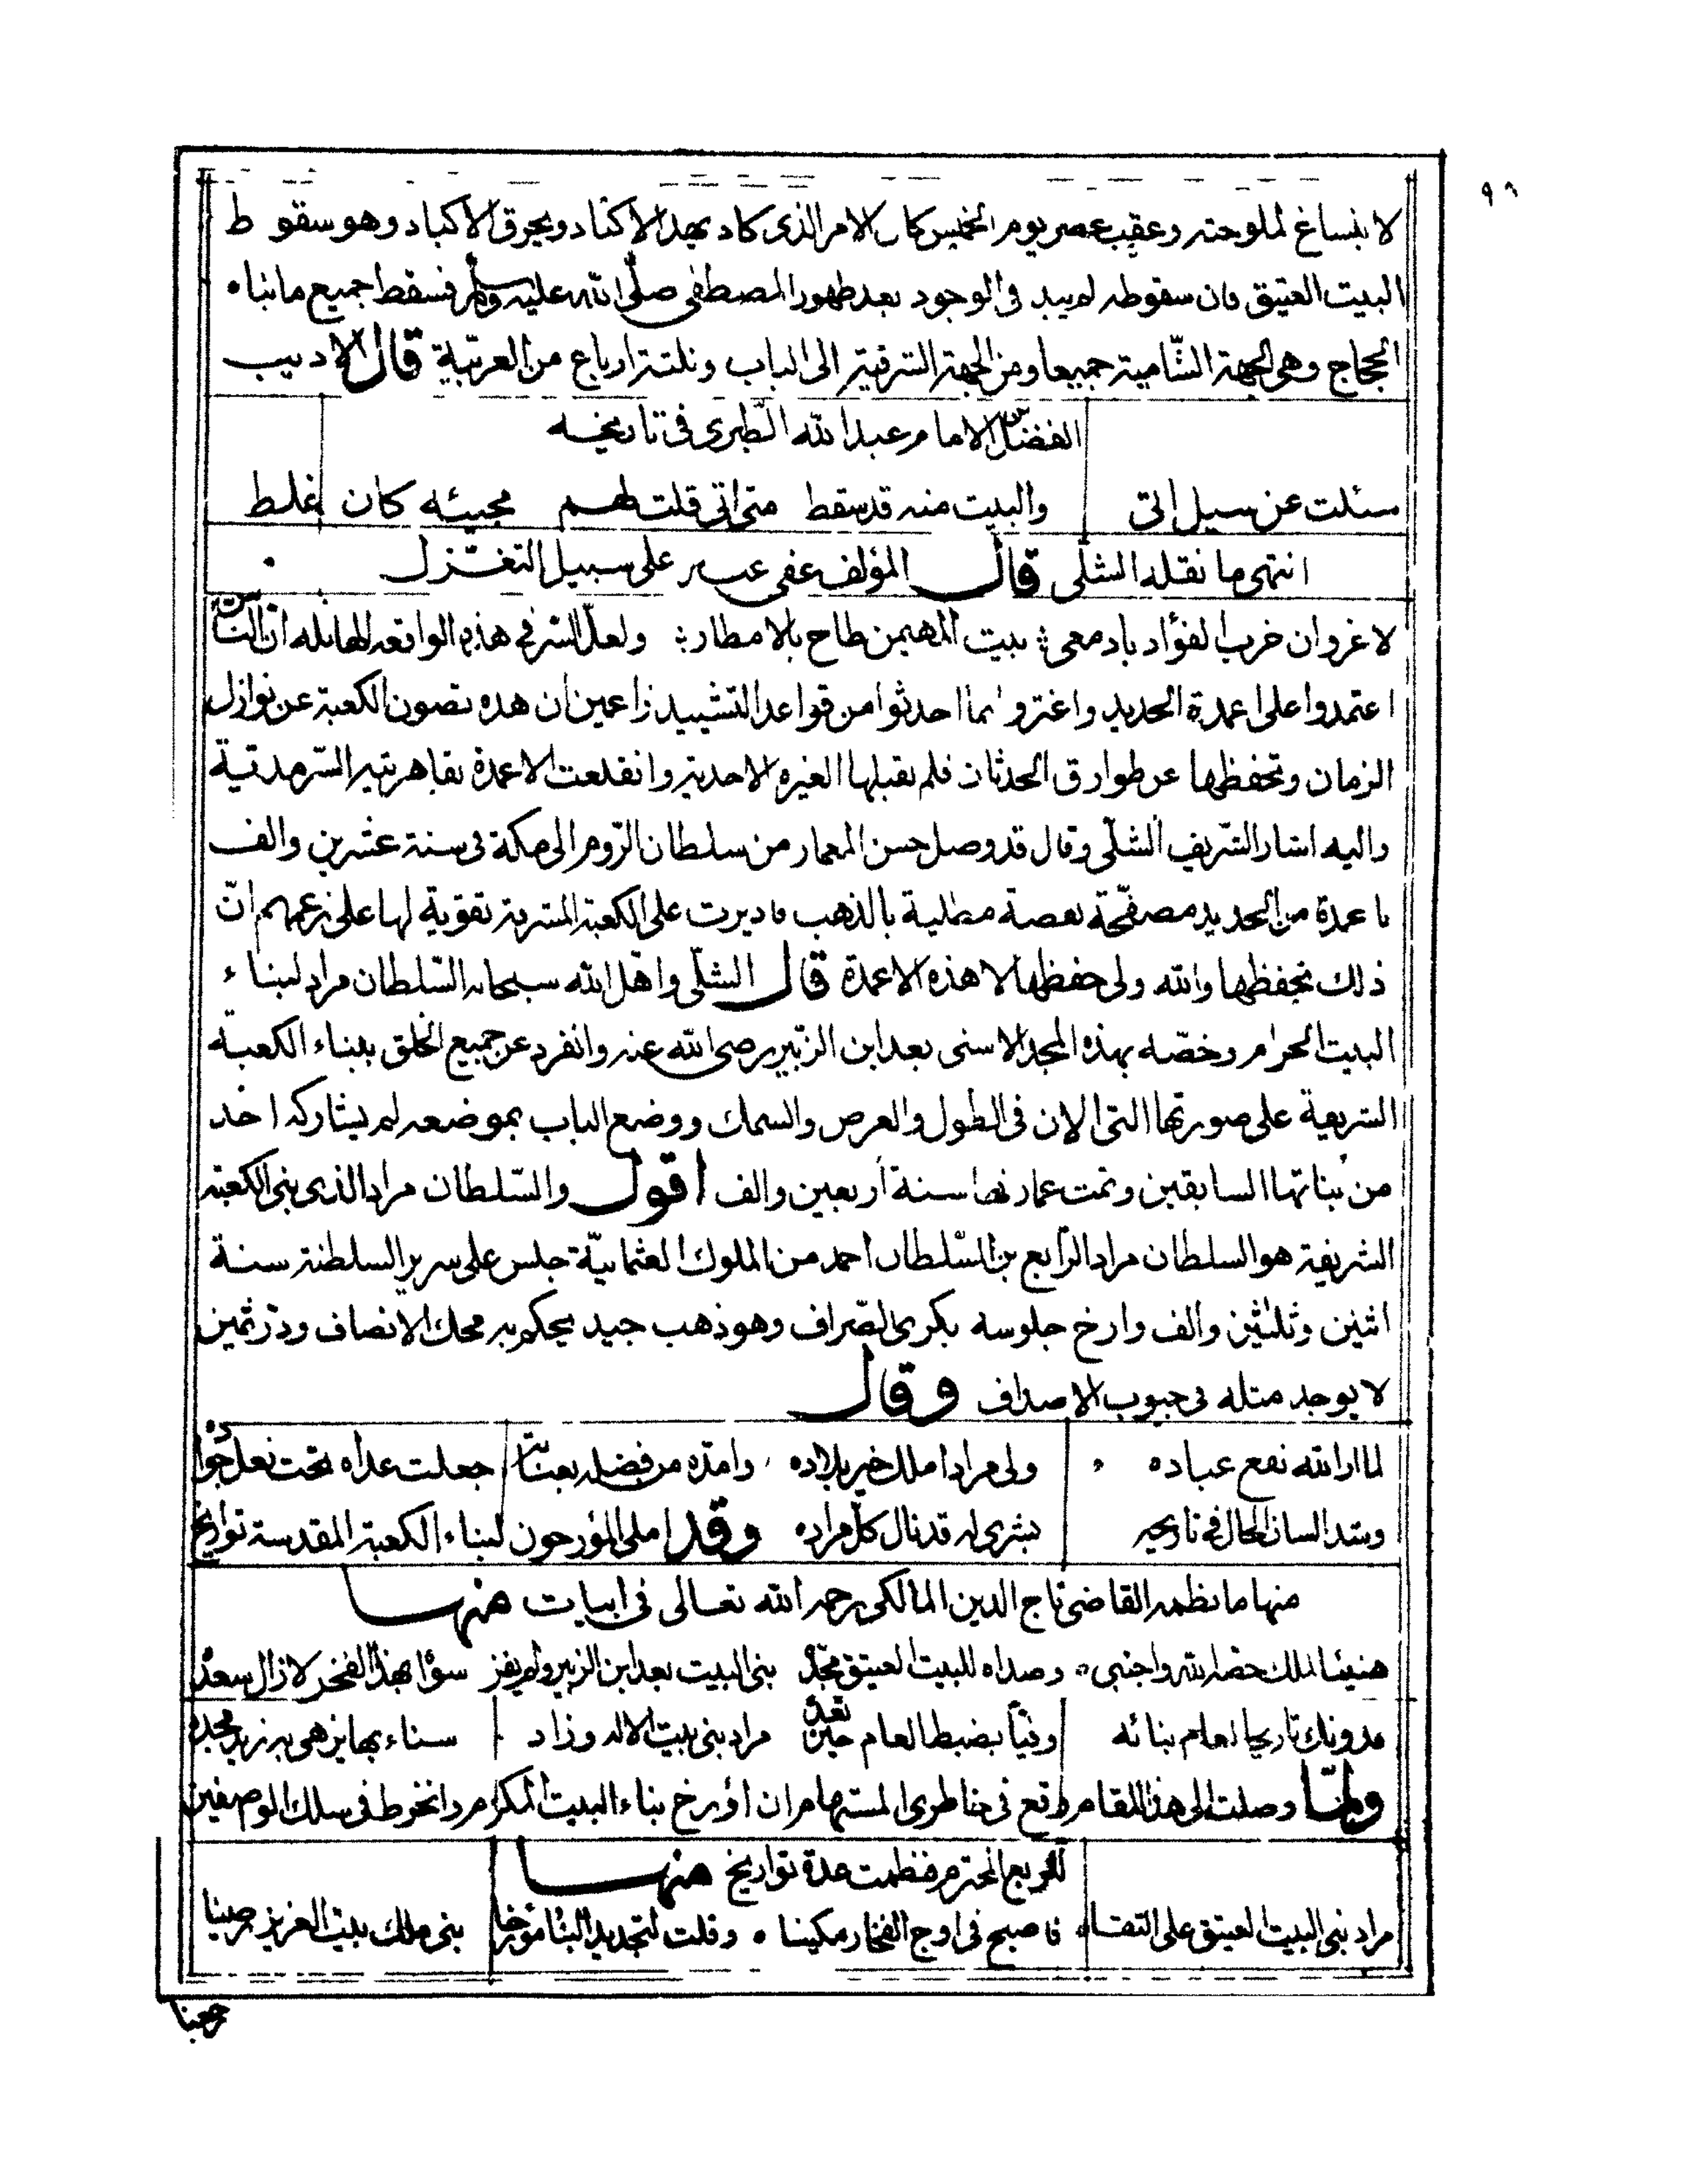 ٩٦
لا ينساغ لملوحته وعقيب عصر يوم الخميس كان الامر الذى كاد يهد الاكتاد ويحرق الاكباد وهو سقوط
البيت العتيق فان سقوطه لم يبد فى الوجود بعد ظهور المصطفى صلى الله عليه وسلم فسقط جميع ما بناه
الحجاج وهى الجهة الشّامية جميعا ومن الجهة الشرقية الى الباب وثلثة ارباع من الغربيّة قال الاديب
الفضل الامام عبد الله الطبرى فى تاريخه
سئلت عن سيل اتى والبيت منه قد سقط متى اتى قلت لهم مجيئه كان غلط
انتهى ما نقله الشلّى قال المؤلف عفى عنه على سبيل التغزل
لا غرو ان خرب الفؤاد بادمعى ؛ بيت المهيمن طاح بالامطار ؛ ولعلّ السّر فى هذه الواقعه الهايله ان النّاس
اعتمدوا على اعمدة الحديد واغتروا بما احدثوا من قواعد التشييد زاعمين ان هذه تصون الكعبة عن نوازل
الزمان وتحفظها عن طوارق الحدثان فلم تقبلها الغيره الاحدية وانقلعت الاعمدة بقاهريته السّرمديّة
واليه اشار الشّريف الشلّى وقال قد وصل حسن المعمار من سلطان الرّوم الى مكة فى سنة عشرين والف
باعمدة من الحديد مصفّحة بفضة مطلية بالذهب فاديرت على الكعبة المشرفة تقوية لها على زعمهم انّ
ذلك يحفظها والله ولى حفظها لا هذه الاعمدة قال الشلّى واهّل الله سبحانه السّلطان مراد لبناء
البيت الحرام وخصّه بهذه المجد الاسنى بعد ابن الزّبير رضى الله عنه وانفرد عن جميع الخلق ببناء الكعبة
الشريفة على صورتها التى الان فى الطول والعرض والسمك ووضع الباب بموضعه لم يشاركه احد
من بُناتها السابقين وتمت عمارتها سنة اربعين والف اقول والسّلطان مراد الذى بنى الكعبة
الشريفة هو السلطان مراد الرّابع بن السّلطان احمد من الملوك العثمانيّة جلس على سرير السلطنة سنة
اثنين وثلثين والف وارخ جلوسه بكرى الصّراف وهو ذهب جيد يحكم به محك الانصاف ودرّ ثمين
لا يوجد مثله فى جيوب الاصداف وقال
لما اراد الله نفع عباده ولى مرادا ملك خير بلاده وامدّه من فضله بعناية جعلت عداه تحت نعل جواده
وشدا لسان الحال فى تاريخه بشرى له قد نال كلّ مراده وقد املى المؤرخون لبناء الكعبة المقدسة تواريخ
منها ما نظمه القاضى تاج الدين المالكى رحمه الله تعالى فى ابيات منها
هنيئا لملك خصه الله واجتبى وصداه للبيت العتيق مجدّد بنى البيت بعد ابن الزبير ولم يفز سواه بهذا الفخر لا زال سعده
فدونك تاريخا لعام بنائه وفيّا بضبط العام حين تعدّه مراد بنى بيت الاله وزاد سناء بها يزهى به زيد مجده
ولمّا وصلت الى هذا المقام وقع فى خاطرى المستهام ان اؤرخ بناء البيت المكرم وانخرط فى سلك الوصفين
للربع المحترم فنظمت عدة تواريخ منها
مراد بنى البيت العتيق على التقا فاصبح فى اوج الفخار مكينا وقلت لتجديد البنا مؤرخا بنى ملك بيت العزيز رصينا